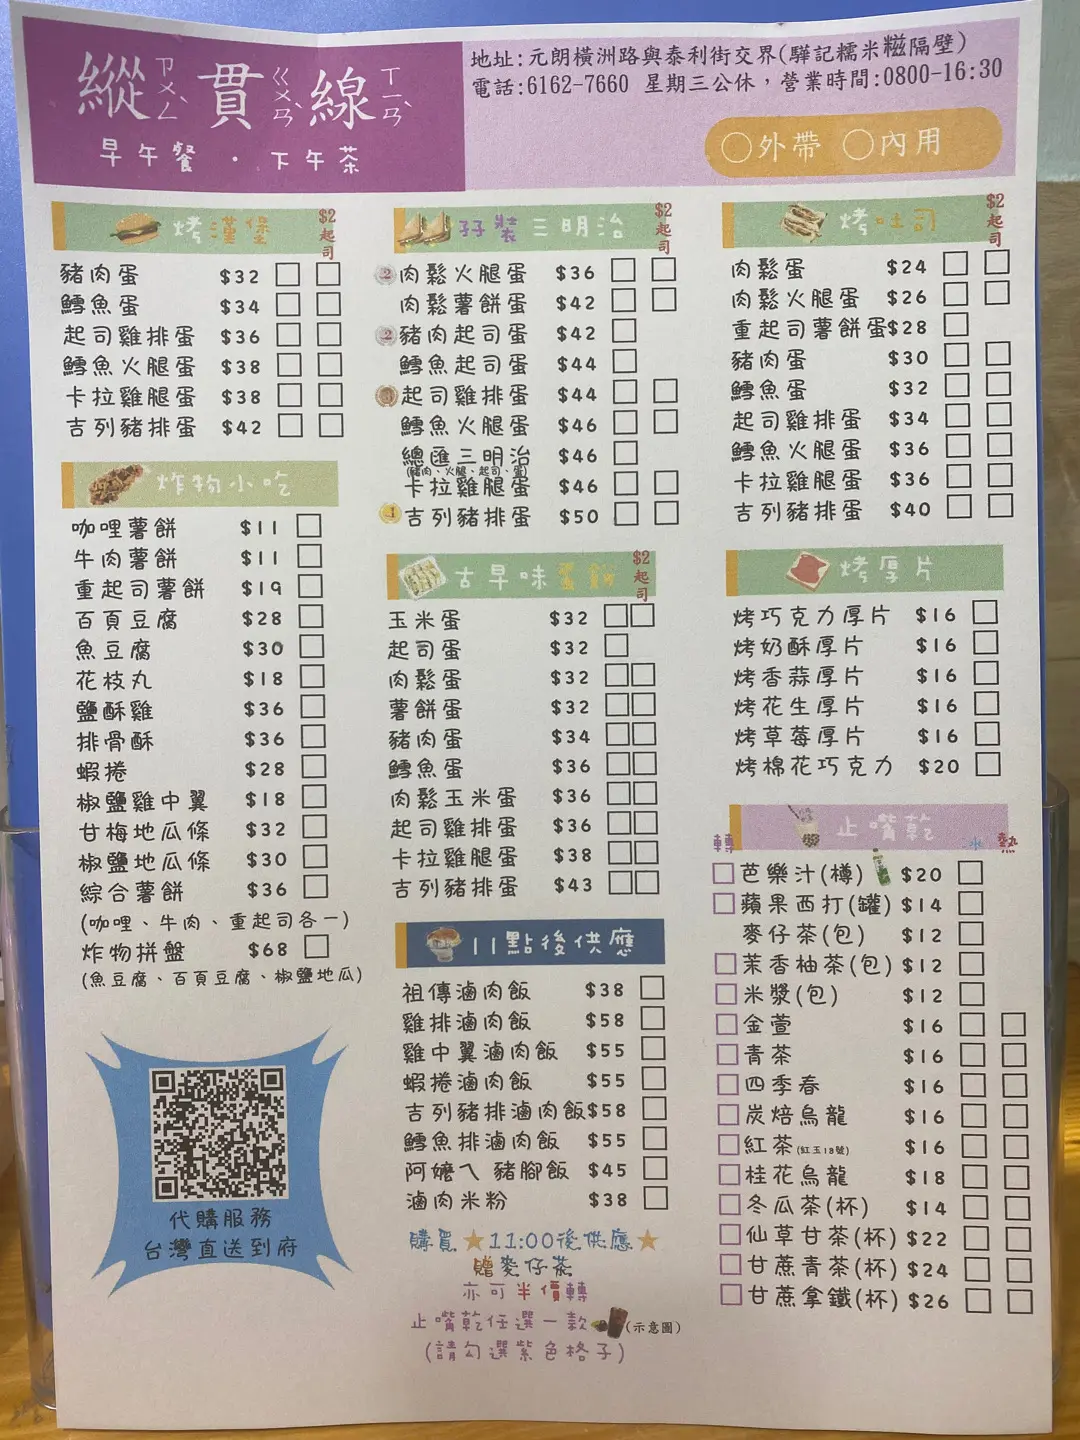 縱ㄗㄨㄥˋ貫ㄍㄨㄢˋ線ㄒㄧㄢˋ
早午餐・下午茶
地址:元朗橫洲路與泰利街交界(驊記糯米糍隔壁)
電話:6162-7660 星期三公休，營業時間:0800-16:30
○外帶 ○內用
烤漢堡 $2起司
豬肉蛋 $32
鱈魚蛋 $34
起司雞排蛋 $36
鱈魚火腿蛋 $38
卡拉雞腿蛋 $38
吉列豬排蛋 $42
炸物小吃
咖哩薯餅 $11
牛肉薯餅 $11
重起司薯餅 $19
百頁豆腐 $28
魚豆腐 $30
花枝丸 $18
鹽酥雞 $36
排骨酥 $36
蝦捲 $28
椒鹽雞中翼 $18
甘梅地瓜條 $32
椒鹽地瓜條 $30
綜合薯餅 $36
(咖哩、牛肉、重起司各一)
炸物拼盤 $68
(魚豆腐、百頁豆腐、椒鹽地瓜)
代購服務
台灣直送到府
孖裝三明治 $2起司
2 肉鬆火腿蛋 $36
肉鬆薯餅蛋 $42
2 豬肉起司蛋 $42
鱈魚起司蛋 $44
3 起司雞排蛋 $44
鱈魚火腿蛋 $46
總匯三明治 $46
(豬肉、火腿、起司、蛋)
卡拉雞腿蛋 $46
1 吉列豬排蛋 $50
古早味蛋餅 $2起司
玉米蛋 $32
起司蛋 $32
肉鬆蛋 $32
薯餅蛋 $32
豬肉蛋 $34
鱈魚蛋 $36
肉鬆玉米蛋 $36
起司雞排蛋 $36
卡拉雞腿蛋 $38
吉列豬排蛋 $43
11點後供應
祖傳滷肉飯 $38
雞排滷肉飯 $58
雞中翼滷肉飯 $55
蝦捲滷肉飯 $55
吉列豬排滷肉飯$58
鱈魚排滷肉飯 $55
阿嬤ㄟ豬腳飯 $45
滷肉米粉 $38
購買★11:00後供應★
贈麥仔茶
亦可半價轉
止嘴乾任選一款(示意圖)
(請勾選紫色格子)
烤吐司 $2起司
肉鬆蛋 $24
肉鬆火腿蛋 $26
重起司薯餅蛋$28
豬肉蛋 $30
鱈魚蛋 $32
起司雞排蛋 $34
鱈魚火腿蛋 $36
卡拉雞腿蛋 $36
吉列豬排蛋 $40
烤厚片
烤巧克力厚片 $16
烤奶酥厚片 $16
烤香蒜厚片 $16
烤花生厚片 $16
烤草莓厚片 $16
烤棉花巧克力 $20
轉 止嘴乾 冰 熱
芭樂汁(樽) $20
蘋果西打(罐) $14
麥仔茶(包) $12
茉香柚茶(包) $12
米漿(包) $12
金萱 $16
青茶 $16
四季春 $16
炭焙烏龍 $16
紅茶(紅玉18號) $16
桂花烏龍 $18
冬瓜茶(杯) $14
仙草甘茶(杯) $22
甘蔗青茶(杯) $24
甘蔗拿鐵(杯) $26